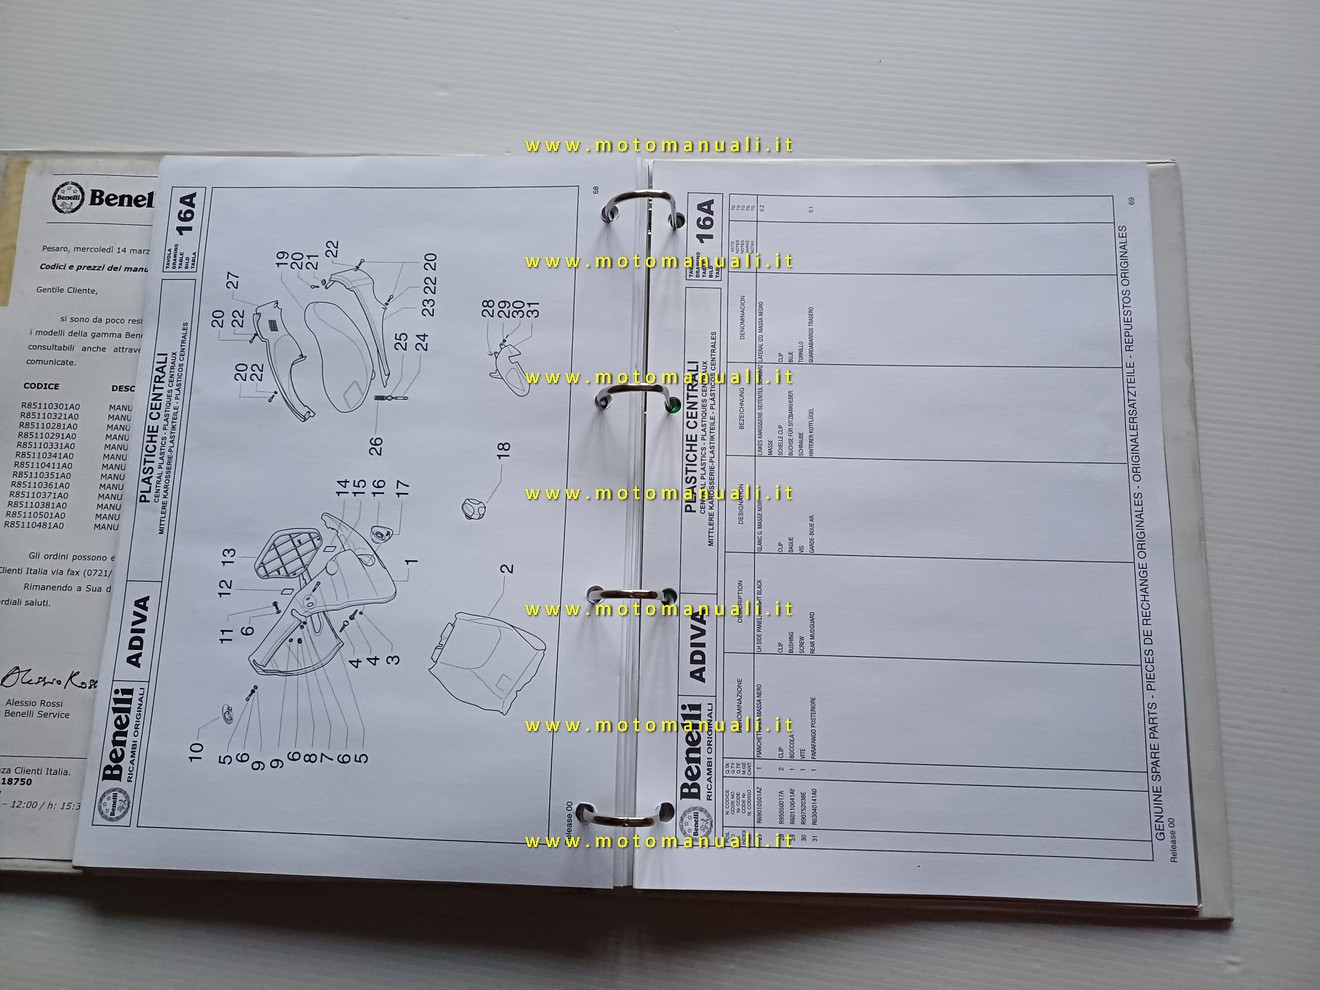 Benel
Pesaro, mercoledì 14 marz
Codici e prezzi dei manu
Gentile Cliente,
si sono da poco resi
i modelli della gamma Bene
consultabili anche attrave
comunicate.
CODICE DESC
R85110301A0 MANU
R85110321A0 MANU
R85110281A0 MANU
R85110291A0 MANU
R85110331A0 MANU
R85110341A0 MANU
R85110411A0 MANU
R85110351A0 MANU
R85110361A0 MANU
R85110371A0 MANU
R85110381A0 MANU
R85110501A0 MANU
R85110481A0 MANU
Gli ordini possono e
Clienti Italia via fax (0721/
Rimanendo a Sua d
rdiali saluti.
Alessio Ross
Alessio Rossi
Benelli Service
za Clienti Italia.
18750
– 12:00 / h: 15:3
Benelli
Benelli
RICAMBI ORIGINALI
ADIVA
PLASTICHE CENTRALI
CENTRAL PLASTICS - PLASTIQUES CENTRAUX
MITTLERE KAROSSERIE-PLASTIKTEILE - PLÁSTICOS CENTRALES
TAVOLA
DRAWING
TABLE
BILD
TABLA
16A
10
5
6
9
9
6
8
7
6
5
11
6
12
13
4
4
3
14
15
16
17
1
2
18
20
22
20
22
27
19
20
21
22
20
22
23
24
25
26
28
29
30
31
Release 00
68
Benelli
RICAMBI ORIGINALI
ADIVA
PLASTICHE CENTRALI
CENTRAL PLASTICS - PLASTIQUES CENTRAUX
MITTLERE KAROSSERIE-PLASTIKTEILE - PLÁSTICOS CENTRALES
16A
DESIGNATION BEZEICHNUNG DENOMINACION
28 R95050017A 2 CLIP CLIP CLIP SCHELLE CLIP CLIP
1 BOCCOLA BUSHING BAGUE BUCHSE FÜR SITZBANKHEBER BUJE
30 1 VITE SCREW VIS SCHRAUBE TORNILLO
31 1 PARAFANGO POSTERIORE REAR MUDGUARD GARDE-BOUE AR. HINTERER KOTFLÜGEL GUARDABARROS TRASERO
GENUINE SPARE PARTS - PIECES DE RECHANGE ORIGINALES - ORIGINALERSATZTEILE - REPUESTOS ORIGINALES
Release 00
69
www.motomanuali.it
www.motomanuali.it
www.motomanuali.it
www.motomanuali.it
www.motomanuali.it
www.motomanuali.it
www.motomanuali.it